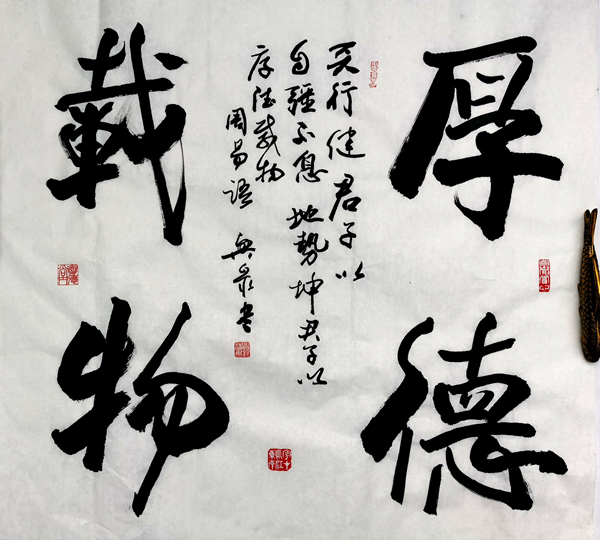 厚德
載物
天行健君子以
自疆不息地勢坤君子以
厚德載物
周易語 興泉書